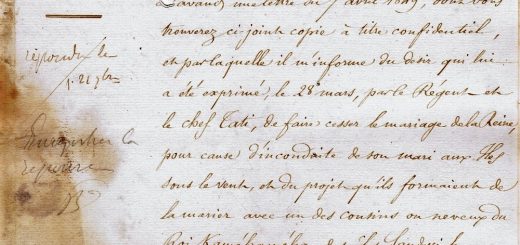 Lavaud, une lettre du 7 avril 1849, dont vous
trouverez ci joint copie à titre confidentiel,
et par laquelle il m'informe du desir qui lui
a été exprimé, le 28 mars, par le Regent et
le chef Tati, de faire cesser le mariage de la Reine,
pour cause d'inconduite de son mari aux Iles
sous le vent, et du projet qu'ils formaient de
la marier avec un des cousins ou neveux du
Roi Kaméhaméha des Iles Sandwich
repondu le
la
reponse